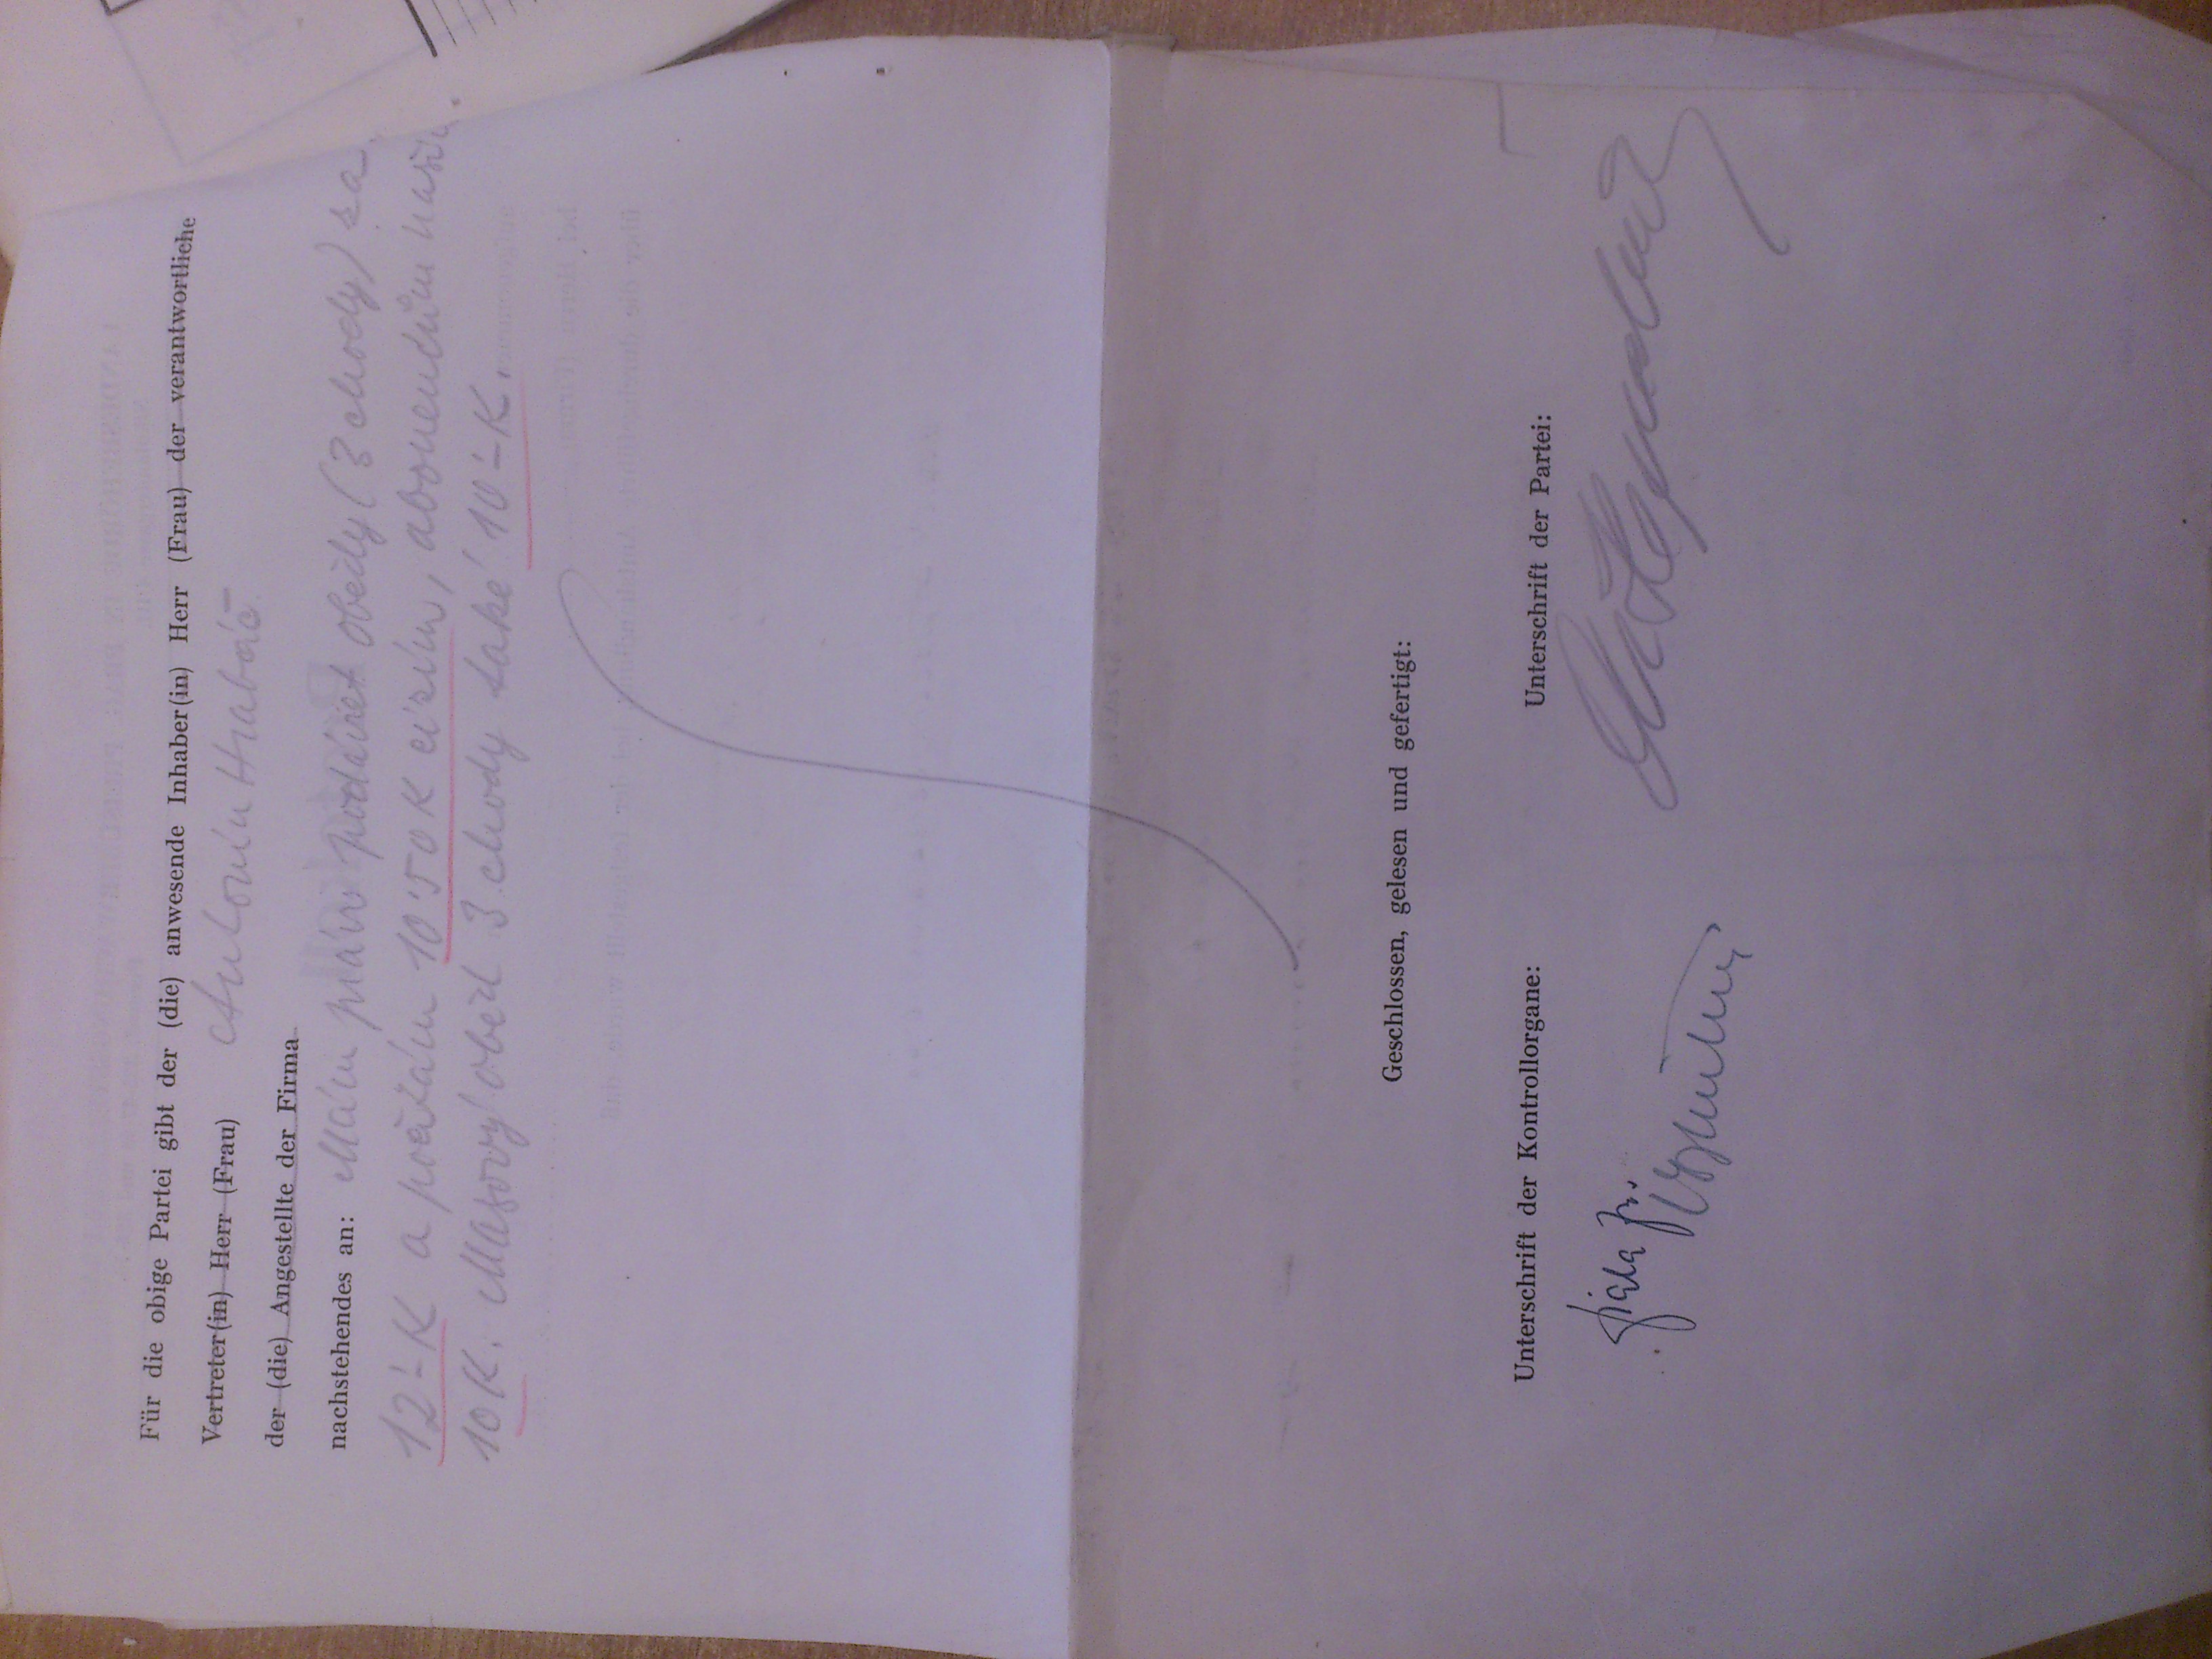 Für die obige Partei gibt der (die) anwesende Inhaber(in) Herr (Frau) der verantwortliche
Vertreter(in) Herr (Frau) Antonín Hrabáč
der (die) Angestellte der Firma
nachstehendes an: Mám právo podávat obědy (3 chody) za
12'-K a počítám 10'50 K cizím, abonentům našim
10 K. Masový oběd 3 chody také 10'-K.
Geschlossen, gelesen und gefertigt:
Unterschrift der Kontrollorgane: Unterschrift der Partei:
Fiala